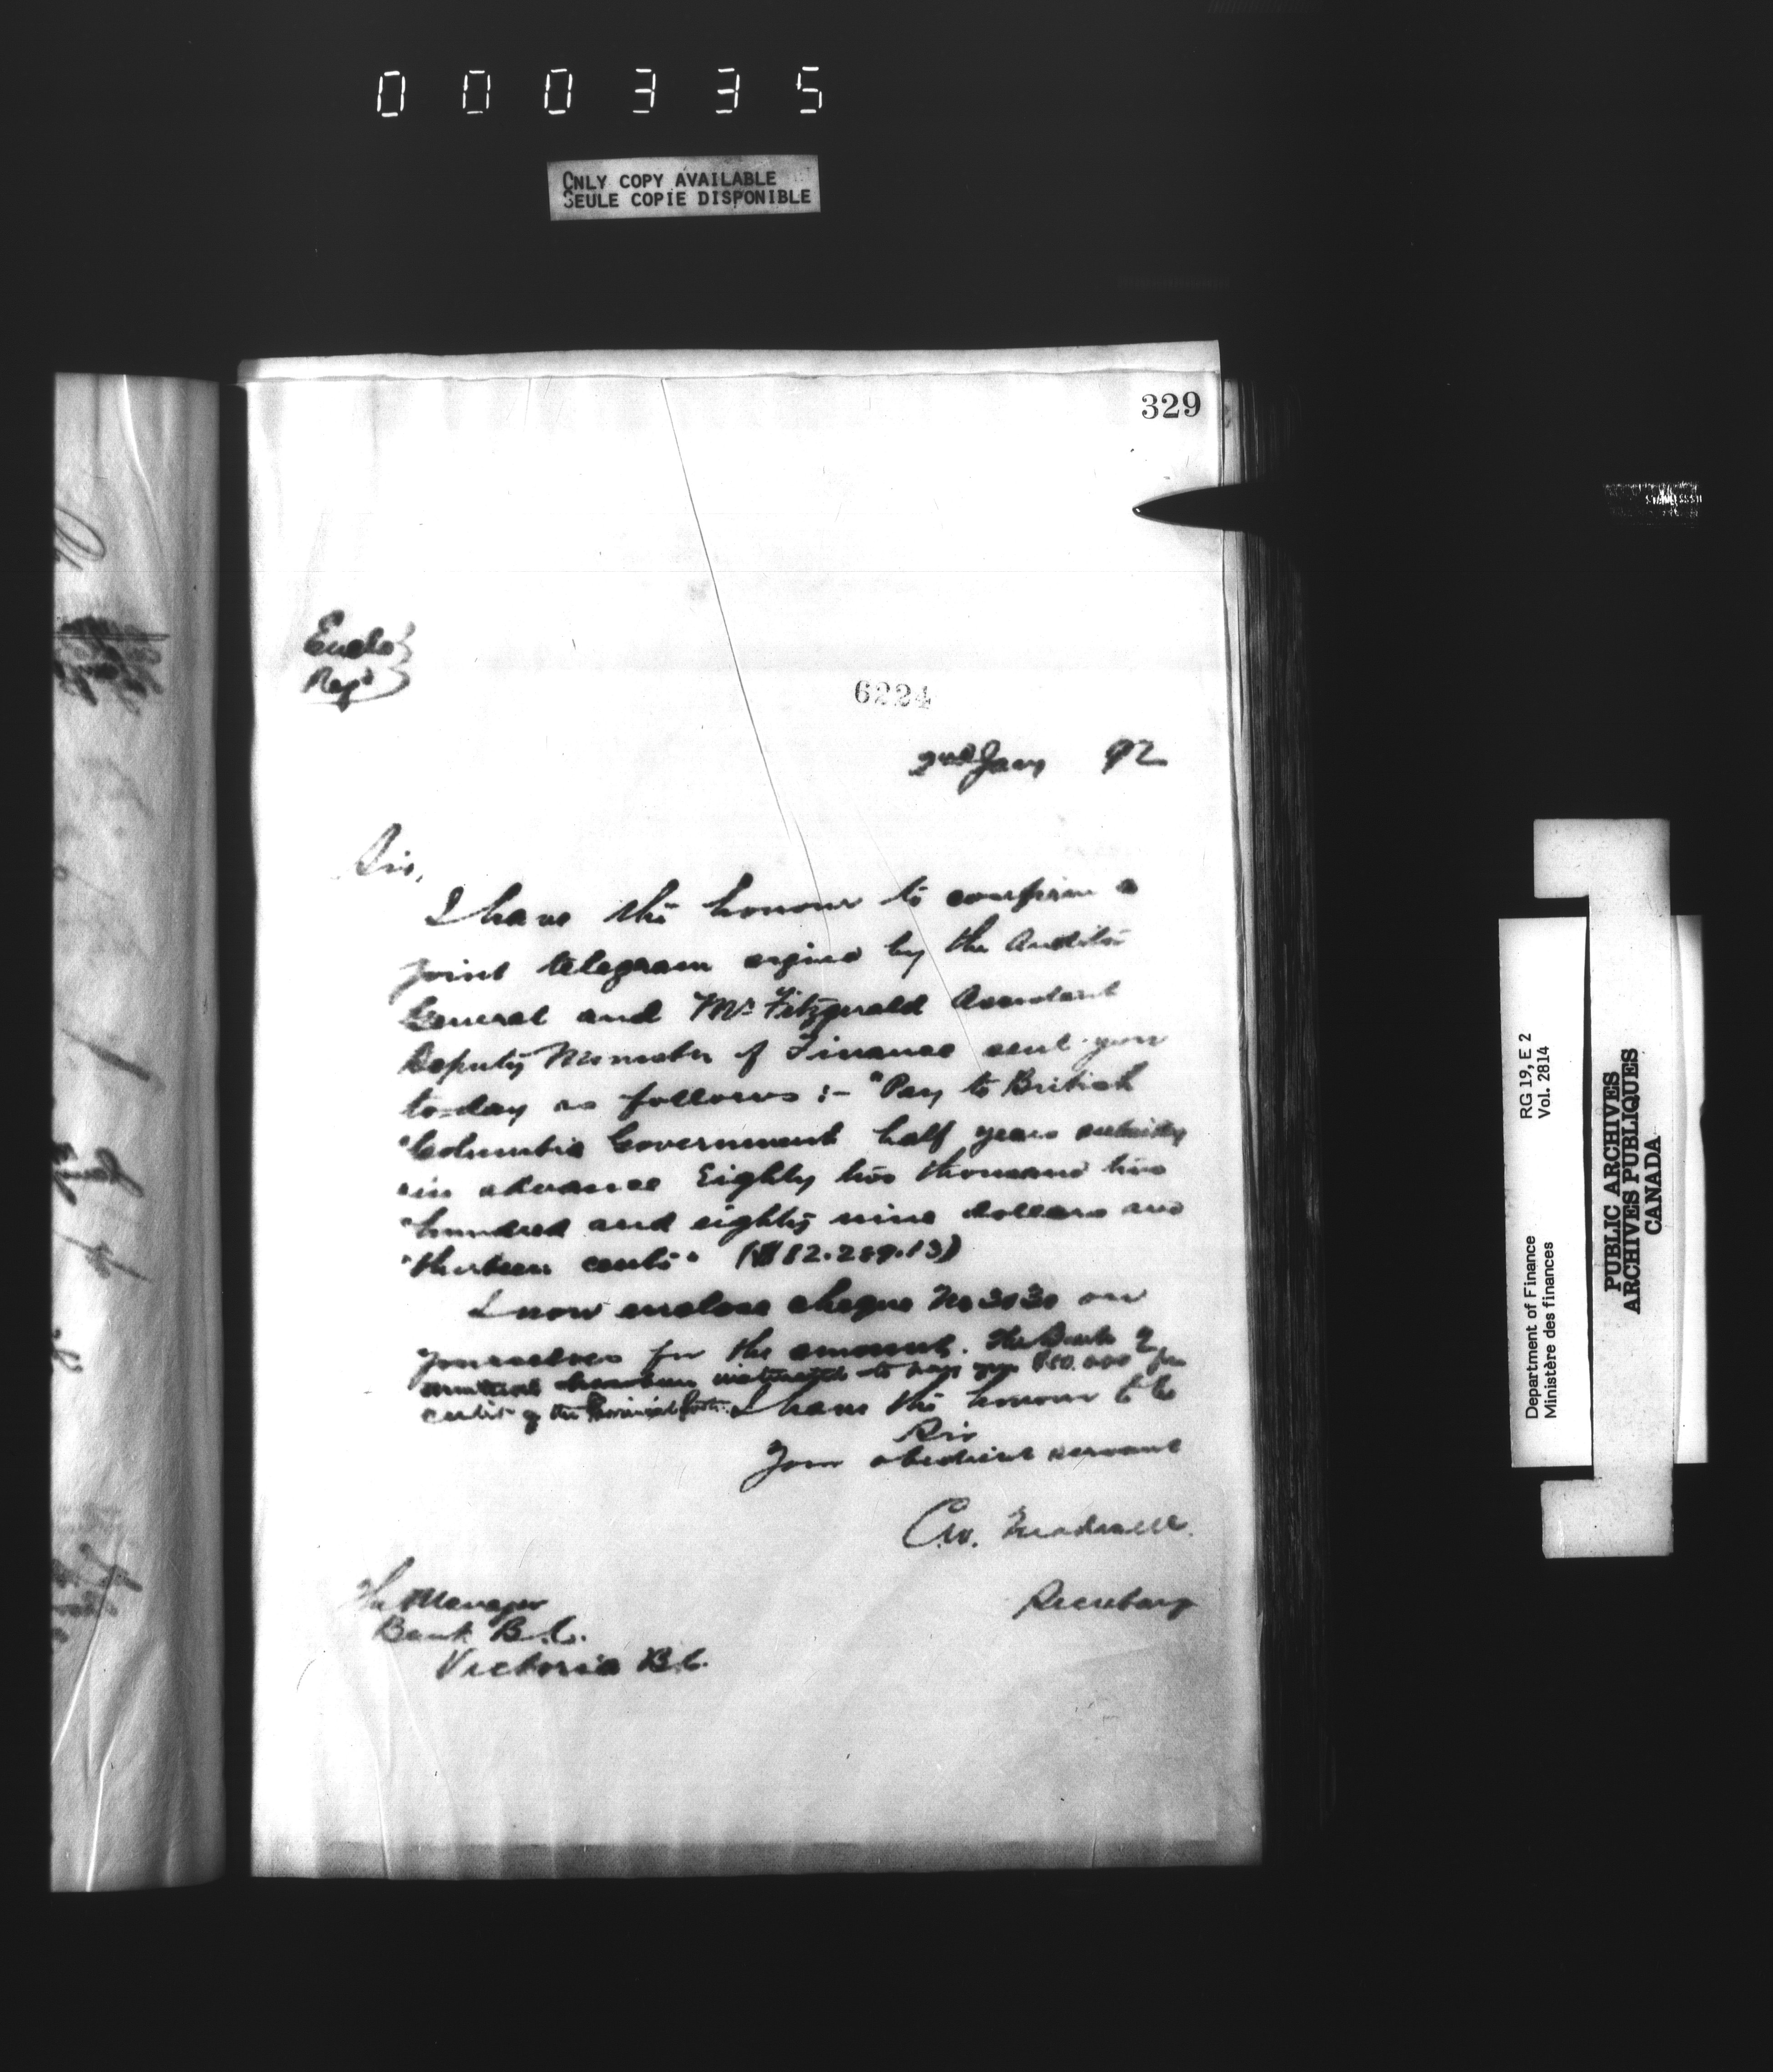 000335
ONLY COPY AVAILABLE
SEULE COPIE DISPONIBLE
329
Enclo
Regd
6224
2nd Jany 92
Sir,
I have the honour to confirm a
joint telegram signed by the Auditor
General and Mr Fitzgerald Assistant
Deputy Minister of Finance sent you
to-day as follows :- "Pay to British
"Columbia Government half years subsidy
"in advance Eighty two thousand two
"hundred and eighty nine dollars and
"thirteen cents" ($82.289.13)
I now enclose cheque No 3030 on
yourselves for the amount. The Bank of
Montreal has been instructed to pay you $50.000 for
credit of the Provincial Govt. I have the honour to be
Sir
Your obedient servant
C.W. Treadwell.
Secretary
The Manager
Bank B.C.
Victoria B.C.
RG 19, E 2
Vol. 2814
Department of Finance
Ministère des finances
PUBLIC ARCHIVES
ARCHIVES PUBLIQUES
CANADA